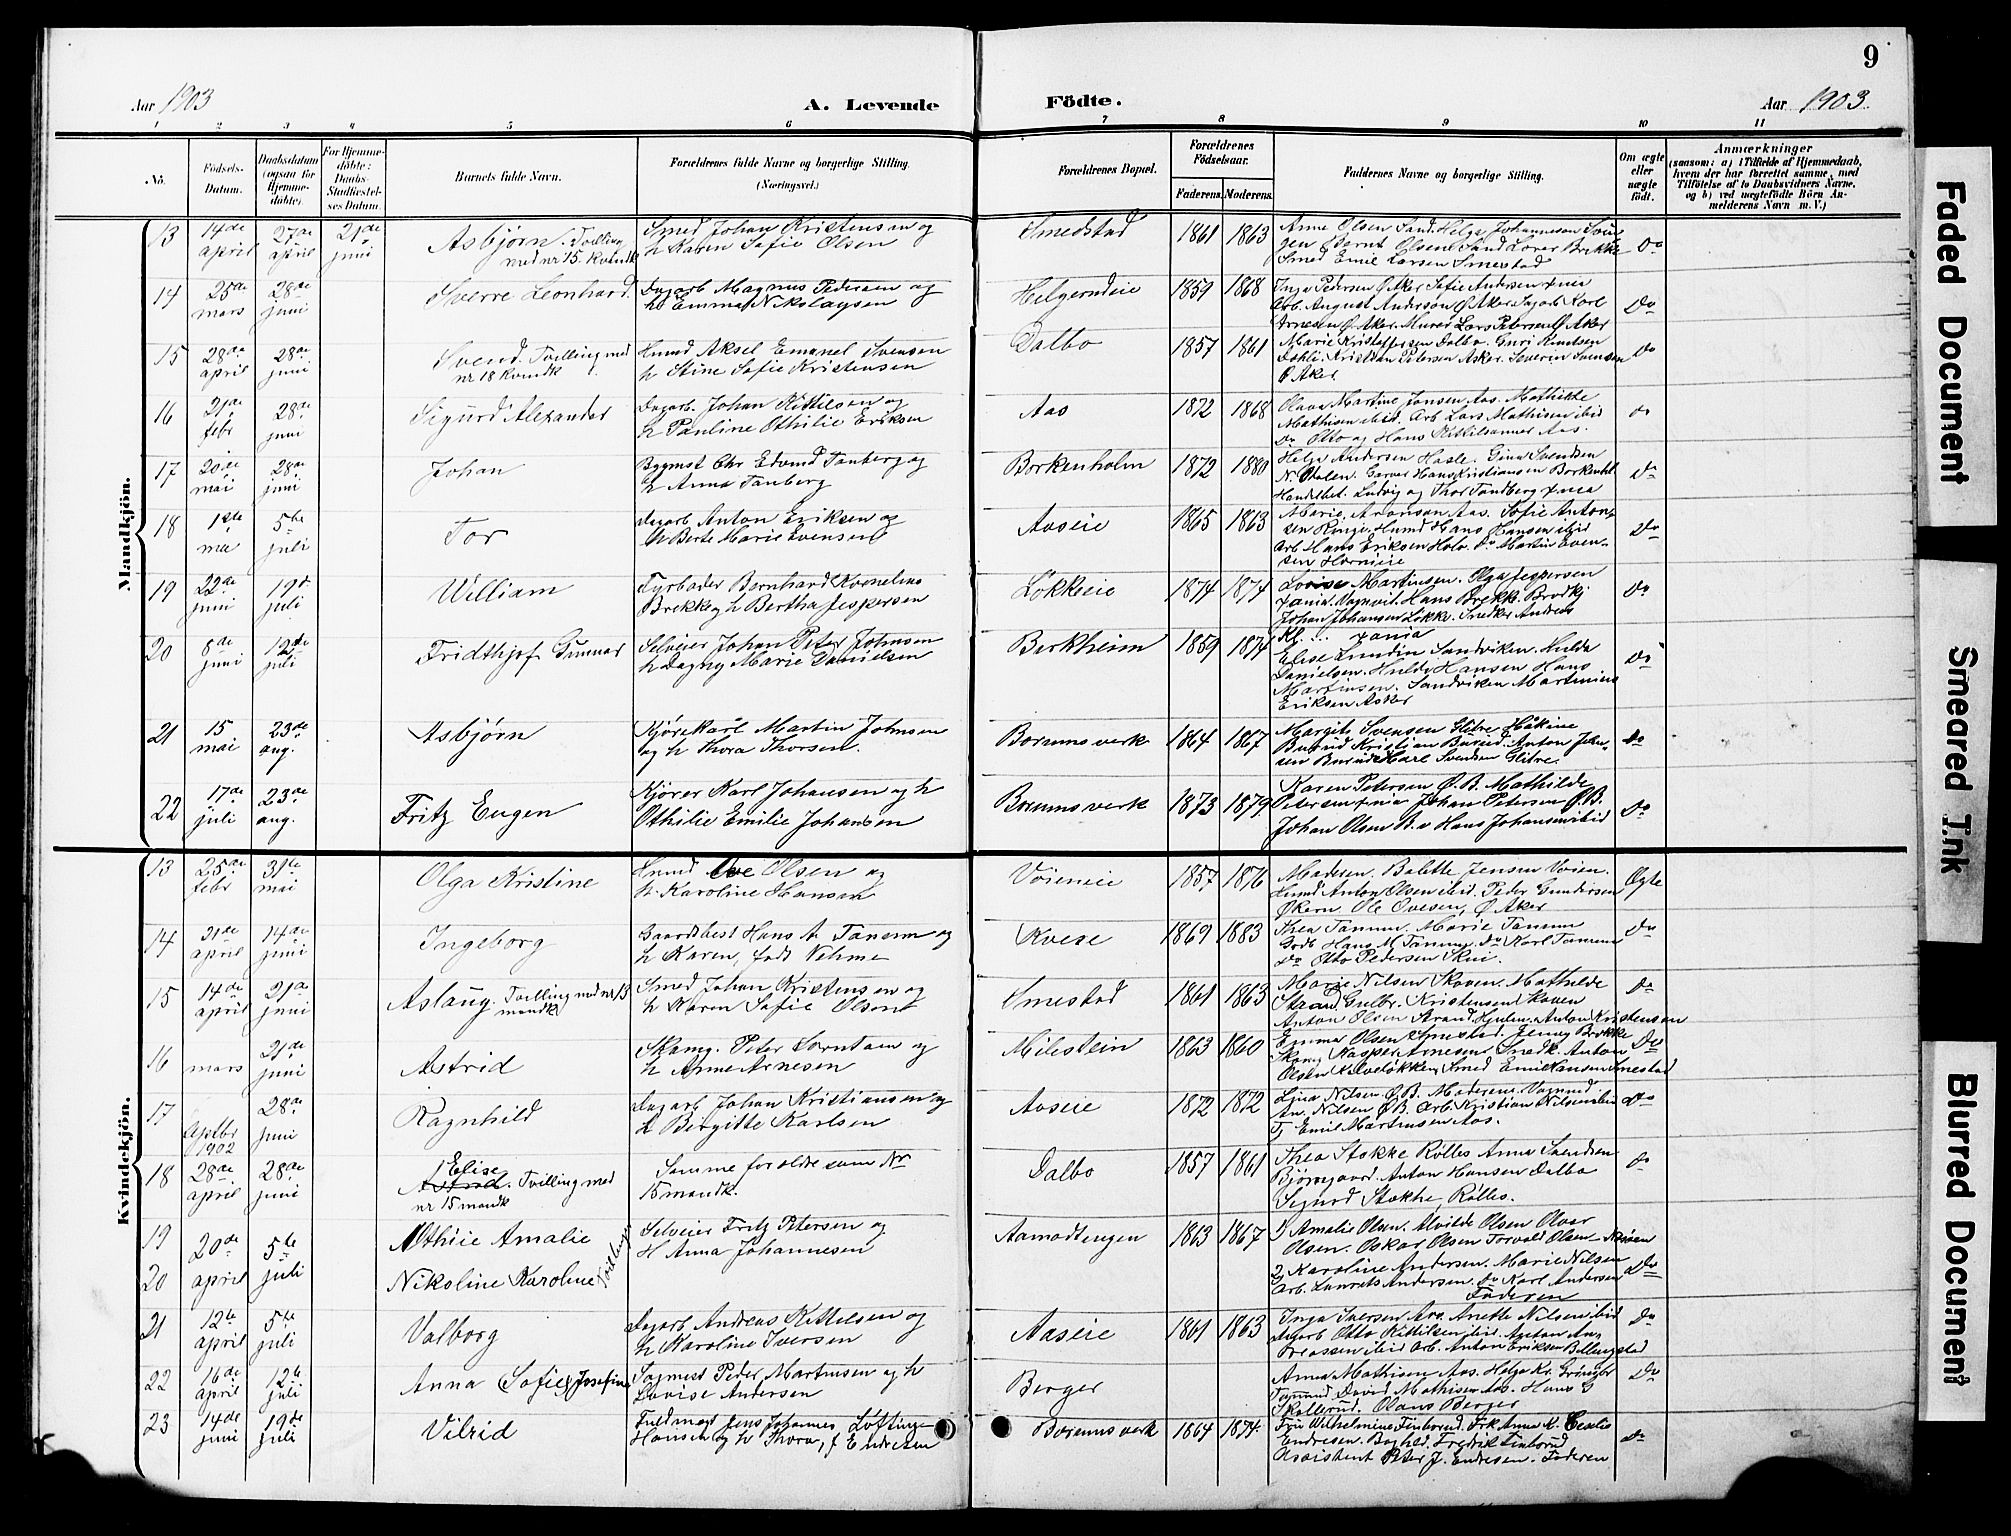 9
Aar 1903
A. Levende
Födte.
Aar 1903.
1 2 3 4 5 6 7 8 9 10 11
No.
Födsels-
Datum.
Daabsdatum
(ogsaa for
Hjemme-
døbte).
For Hjemme-
döbte:
Daabs-
Stadfæstel-
ses Datum.
Barnets fulde Navn.
Forældrenes fulde Navne og borgerlige Stilling.
(Næringsvei.)
Forældrenes Bopæl.
Forældrenes
Födselsaar.
Faderens.
Moderens.
Faddernes Navne og borgerlige Stilling.
Om ægte
eller
uægte
födt.
Anmærkninger
(saasom: a) i Tilfælde af Hjemmedaab,
hvem der har forrettet samme, med
Tilföielse af to Daabsvidners Navne,
og b) ved uægtefödte Börn An-
melderens Navn m. V.)
Mandkjön.
13 14de april 27de april 21de juni
Asbjørn. Tvilling
med nr 15. Kvindk
Smed Johan Kristensen og
h Karen Sofie Olsen
Smedstad 1861 1863
Smed Emil Larsen Smestad
Do
14 25de mars 28de juni
Sverre Leonhard
Dagarb Magnus Pedersen og
h Emma Nikolaysen
Helgerudeie 1859 1868
Inga Pedersen Ø Aker Sofie Andersen
Arb. August Anderson Ø Aker. Dagarb Karl
Arnesen Ø Aker. Murer Lars Petersen Ø Aker
Do
15 28de april 28de juni
Svend. Tvilling med
nr 18 Kvindk
Husmd Aksel Emanel Svensen
h Stine Sofie Kristensen
Dalbo 1857 1861
Marie Kristoffersen Dalbo. Guri Knudsen
Dahli. Kristian Petersen Asker. Severin Svensen
Ø Aker.
Do
16 21de febr 28de juni
Sigurd Alexander
Dagarb. Johan Kittilsen og
h Pauline Othilie Eriksen
Aas 1872 1868
Olava Martine Jensen Aas. Mathilde
Mathisen ibid. Arb Lars Mathisen ibid
Do Otto og Hans Kittilsønner Aas.
Do
17 20de mai 28de juni
Johan
Bygmst Chr Edvind Tanberg og
h Anna Tanberg
Borkenholm 1872 1880
Helga Andersen Hasle. Gina Svendsen
Do
18 1ste mai 5te juli
Tor
Dagarb Anton Eriksen og
h Berte Marie Evensen
Aaseie 1865 1863
Marie Aronson Aas. Sofie Anton-
sen Ringi. Husmd Hans Hansen ibid
Arb Hans Eriksen Holo. Do Martin Even-
sen Horneie
Do
19 22de juni 19de juli
William
Fyrbøder Bernhard Kornelius
Brekke og h Bertha Jespersen
Løkkeie 1874 1874
Lovise Martinsen. Olga Jespersen
Johan Johansen Løkke. Snedker Andreas
Do
20 8de juni 12de juli
Fridthjof Gunnar
Selveier Johan Peter Johnsen
h Dagny Marie Danielsen
Berkheim 1859 1874
Elise Lundin Sandviken. Hulda
Danielsen. Hulda Hansen Hans
Martinsen. Sandviken Martinius
Eriksen Asker
Do
21 15 mai 23de aug.
Asbjørn
Kjørekarl Martin Johnsen
og h Thora Thorsen.
Bærumsverk 1864 1867
Margit Svensen Glitre Håkine
Burud Kristian Burud. Anton Jen-
sen Burud Karl Svendsen Glitre.
Do
22 17de juli 23de aug.
Fritz Eugen
Kjører Karl Johansen og h
Othilie Emilie Johansen
Bærumsverk 1873 1879
Karen Petersen Ø.B. Mathilde
Petersen Johan Petersen Ø.B.
Johan Olsen B.v Hans Johansen ibid
Do
Kvindekjön.
13 25de febr 31te mai
Olga Kristine
Husmd Ove Olsen og
h. Karoline Hansen
Voieneie 1857 1876
Moderen. Bolette Jensen Voien.
Husmd Anton Olsen ibid. Peder Gundersen
Økern. Ole Ovesen, Ø Aker
Ægte
14 21de april 14de juni
Ingeborg
Gaardbest Hans A Tanum og
h Karen, født Vehme
Kveise 1869 1883
Thea Tanum. Marie Tanum
Gdb. Hans M Tanum, Do Karl Tanum
Do Otto Pedersen Skui.
Do
15 14de april 21de juni
Aslaug. Tvilling med nr 13
mandk
Smed Johan Kristensen og
h Karen Sofie Olsen
Smestad 1861 1863
Marie Nilsen Skoven. Mathilde
Strand. Gulbr. Kristensen Skoven
Anton Olsen Strand. Hjulm. Anton Kristensen
Do
16 mars 21de juni
Astrid
Skomg. Peter Berntsen og
h Anne Arnesen
Milestein 1863 1860
Emma Olsen Smestad. Jenny Brekke
Skomg Kasper Arnesen. Snedk. Anton
Olsen Kalveløkken. Smed Emil Hansen Smestad
Do
17 Septbr 1902 28de juni
Ragnhild
Dagarb Johan Kristiansen og
h Birgitte Karlsen
Aaseie 1872 1872
Lina Nilsen. Ø.B. Moderen.
An. Nilsen Ø B. Arb. Kristian Nilsen ibid
Tj Emil Martinsen Aas.
Do
18 28de april 28de juni
Elise
Astrid. Tvilling med
nr 15 mandk
Samme foreldre som Nr
15 mandk.
Dalbo 1857 1861
Thea Stokke Rølles Anna Svendsen
Bjørngaard. Anton Hansen Dalbo
Sigurd Stokke Rølles.
Do
19 20de april 5te juli
Othilie Amalie
20
Nikoline Karoline
Tvillinger
Selveier Fritz Petersen og
H Anna Johannesen
Aamodtengen 1863 1867
1) Amalie Olsen. Alvilde Olsen Oluar
Olsen. Oskar Olsen Torvald Olsen
2) Karoline Andersen. Marie Nilsen
Arb. Laurits Andersen. Do Karl Andersen
Faderen
Do
21 12te april 5te juli
Valborg
Dagarb Andreas Kittelsen og
h Karoline Iversen
Aaseie 1861 1863
Inga Iversen Aas. Anette Nilsen ibid
Dagarb Otto Kittilsen ibid. Anton An-
dreassen ibid Arb. Anton Eriksen Billingstad
Do
22 16de april 12te juli
Anna Sofie Josefine
Sagmest Peder Martinsen og h
Lovise Andersen
Berger
Anna Mathisen Aas. Helga Kr. Gringer
Tømmd David Mathisen Aas. Hans G
Skollerud. Olaus Berger
Do
23 14de juni 19de juli
Vilrid
Fuldmægt Jens Johannes Løftinge
Hansen og h Thora, f Endresen
Bærumsverk 1864 1874
Fru Wilhelmine Finborud. Frk Anna M. Cecilie
Endresen. Boghld. Fredrik Finborud
Assistent Peter J. Endresen. Faderen
Do
Faded Document
Smeared Ink
Blurred Document